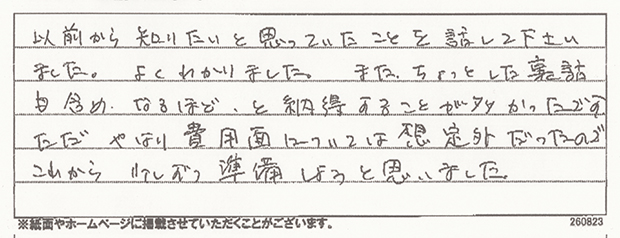 以前から知りたいと思っていたことを話して下さい
ました。よくわかりました。また、ちょっとした裏話
も含め、なるほど、と納得することが多かったです
ただ やはり費用面については想定外だったので
これから 少しずつ準備しようと思いました。
※紙面やホームページに掲載させていただくことがございます。 260823